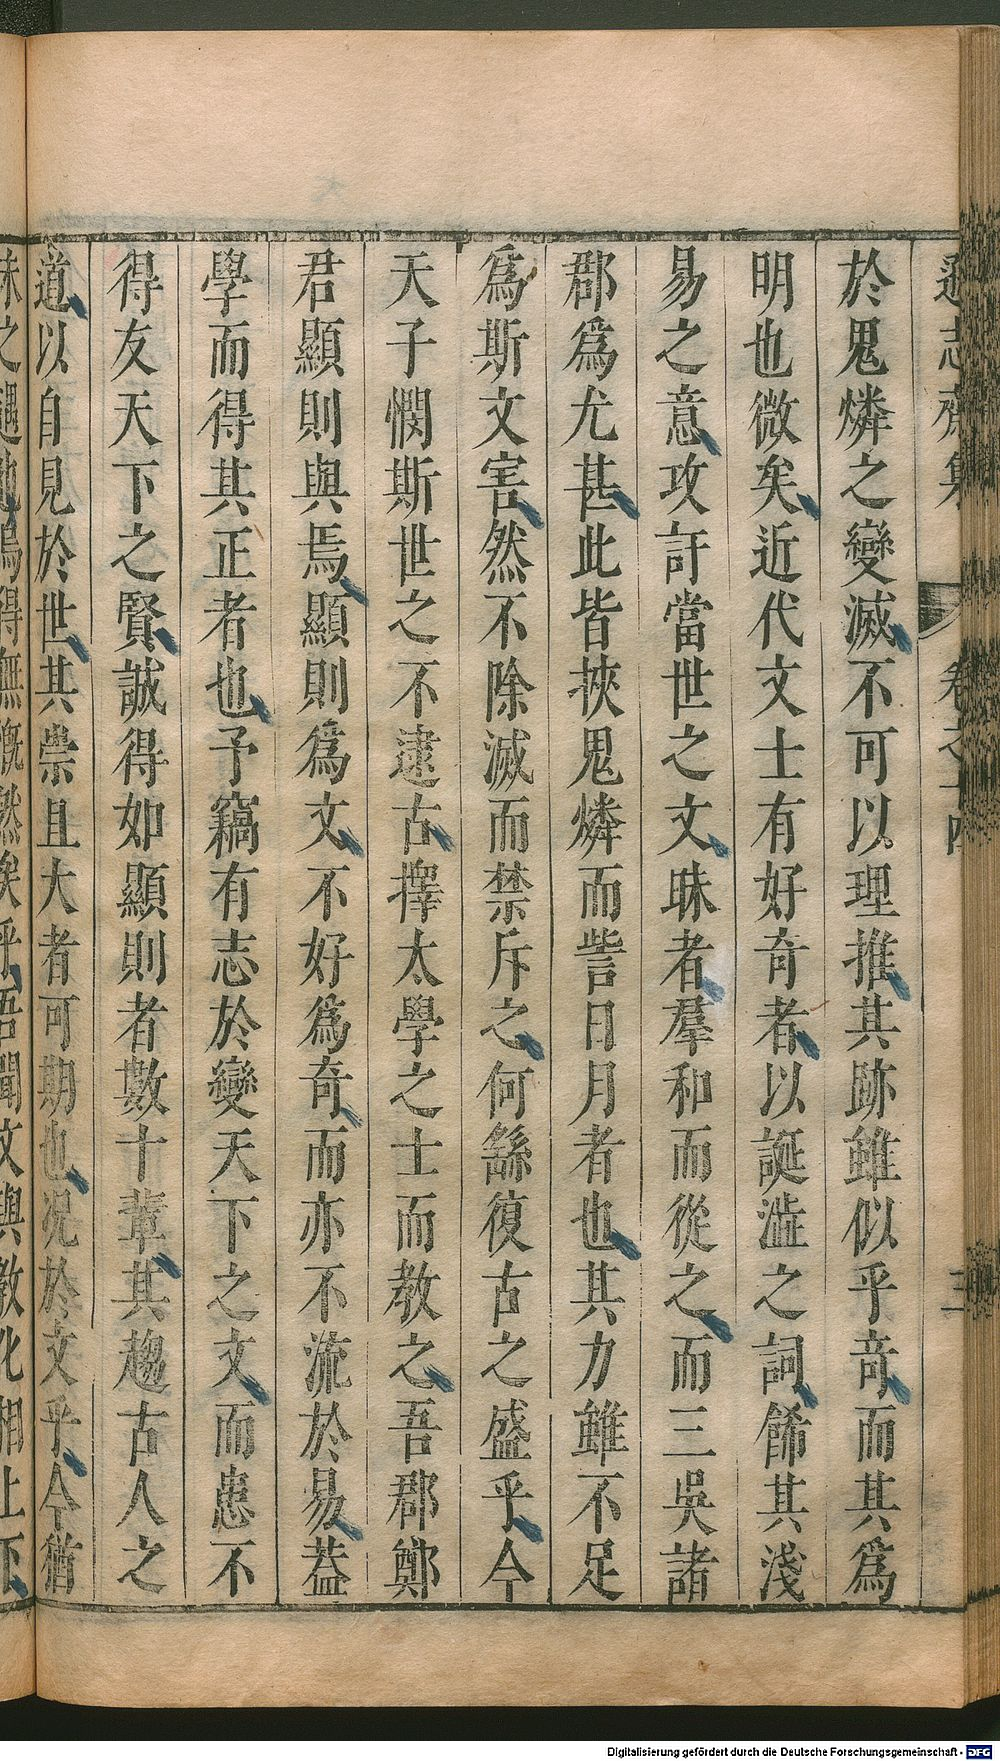 遜志齋集 卷之十四 三
於鬼燐之變滅不可以理推其跡雖似乎竒而其爲
明也微矣近代文士有好奇者以誕澁之詞餙其淺
易之意攻訐當世之文昧者羣和而從之而三吳諸
郡爲尤甚此皆挾鬼燐而訾日月者也其力雖不足
爲斯文害然不除滅而禁斥之何繇復古之盛乎今
天子憫斯世之不逮古擇太學之士而教之吾郡鄭
君顯則與焉顯則爲文不好爲奇而亦不流於易葢
學而得其正者也予竊有志於變天下之文而患不
得友天下之賢誠得如顯則者數十輩其趨古人之
道以自見於世其崇且大者可期也况於文乎今猶
之遇他焉得無慨然矣乎吾聞文與教化相上下
Digitalisierung gefördert durch die Deutsche Forschungsgemeinschaft - DFG